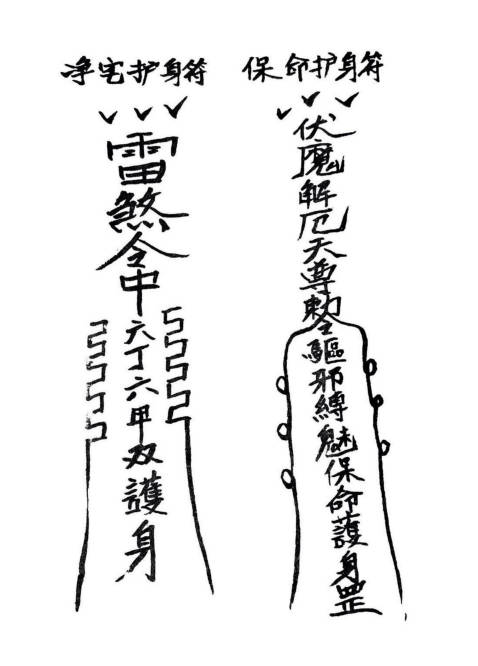 净宅护身符
保命护身符
雷煞令中六丁六甲双護身
伏魔解厄天尊勅令驅邪縛魅保命護身罡